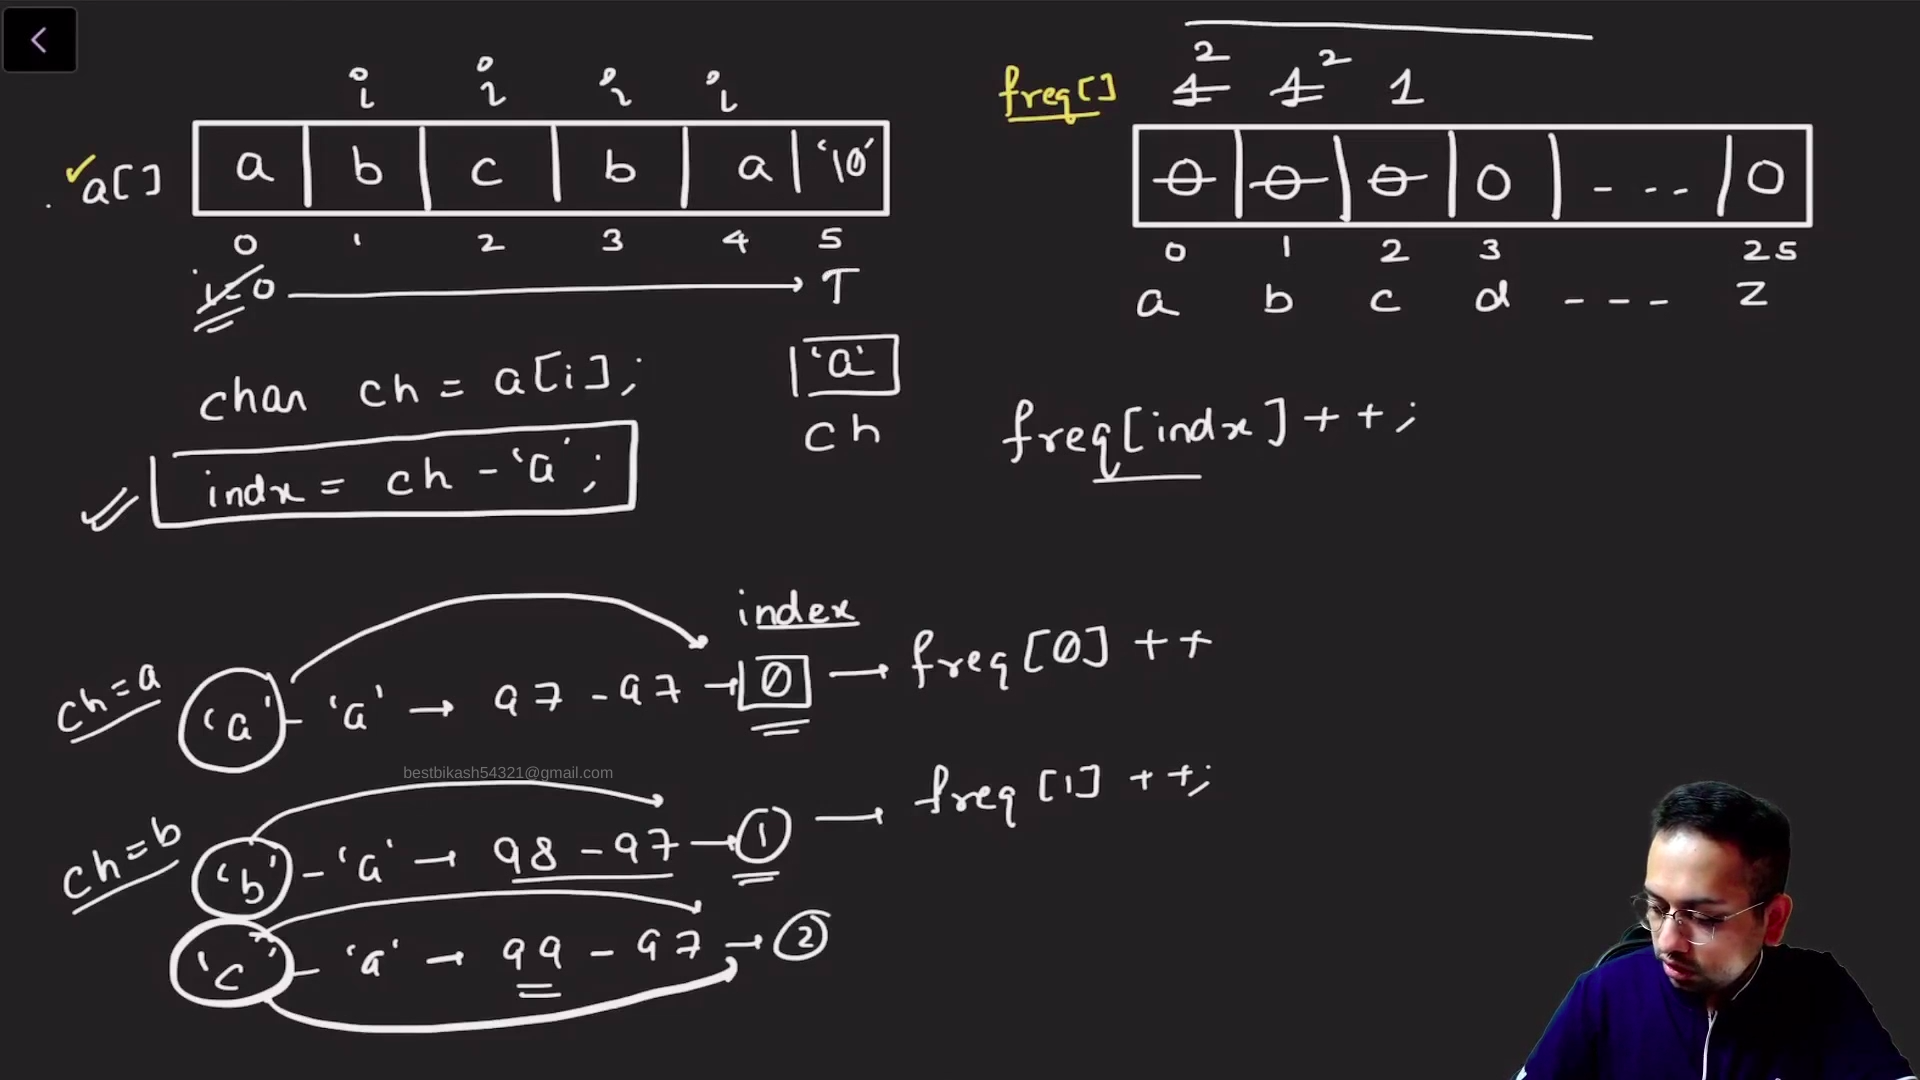 i i i i
a[] a b c b a '\0'
0 1 2 3 4 5
i=0 → T
char ch = a[i];
'a'
ch
indx = ch - 'a';
2 2
freq[] 1 1 1
0 0 0 0 - - - 0
0 1 2 3 25
a b c d - - - z
freq[indx]++;
index
ch=a 'a' - 'a' → 97 - 97 → 0 → freq[0]++
bestbikash54321@gmail.com
ch=b 'b' - 'a' → 98 - 97 → 1 → freq[1]++;
'c' - 'a' → 99 - 97 → 2